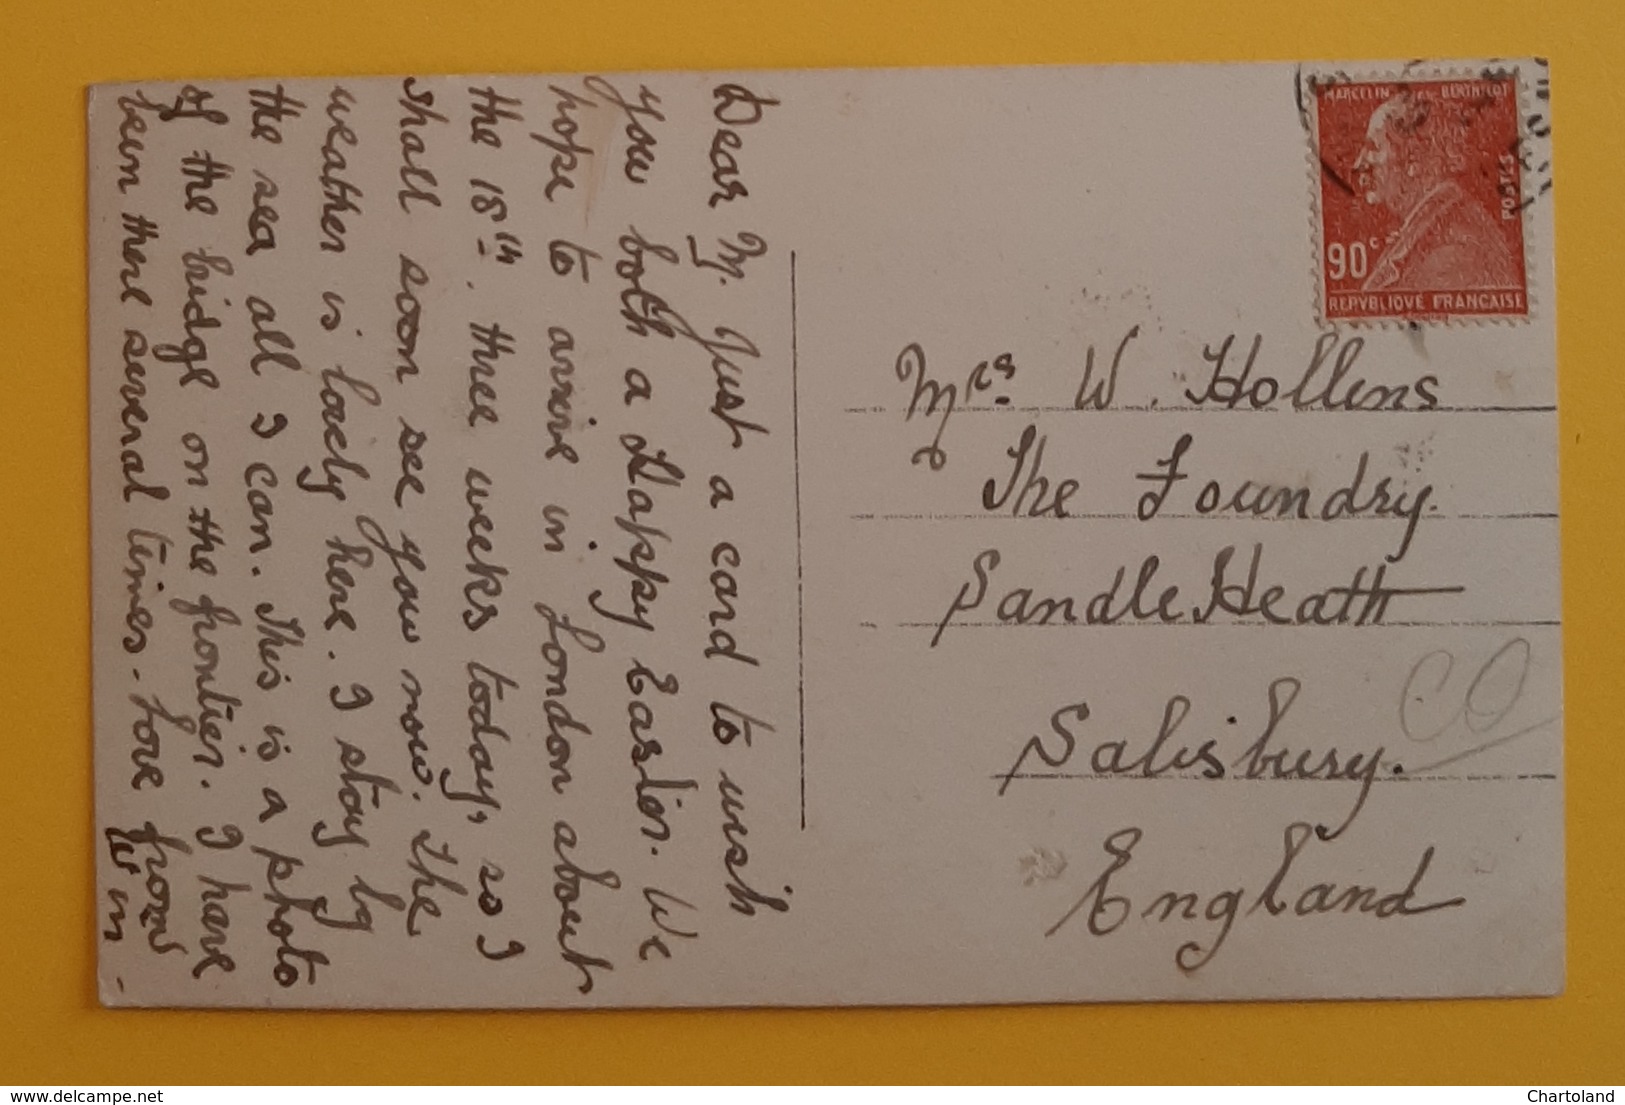 Dear M. Just a card to wish
you both a Happy Easter. We
hope to arrive in London about
the 18th. three weeks today, so I
shall soon see you now. The
weather is lovely here. I stay by
the sea all I can. This is a photo
of the bridge on the frontier. I have
been there several times - Love from
MARCELIN BERTHELOT
POSTES
90c
REPVBLIQVE FRANCAISE
Mrs. W. Hollins
The Foundry.
SandleHeath
Salisbury.
England
CO
delcampe.net
Chartoland